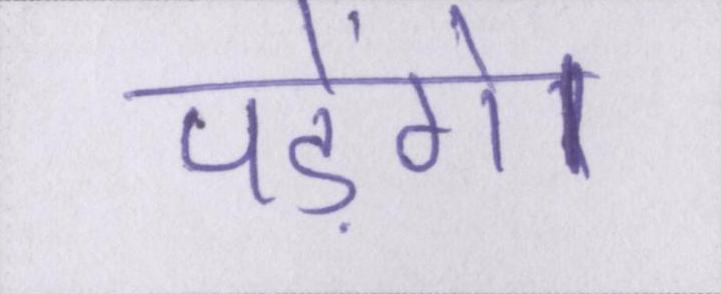 पड़ेंगे।